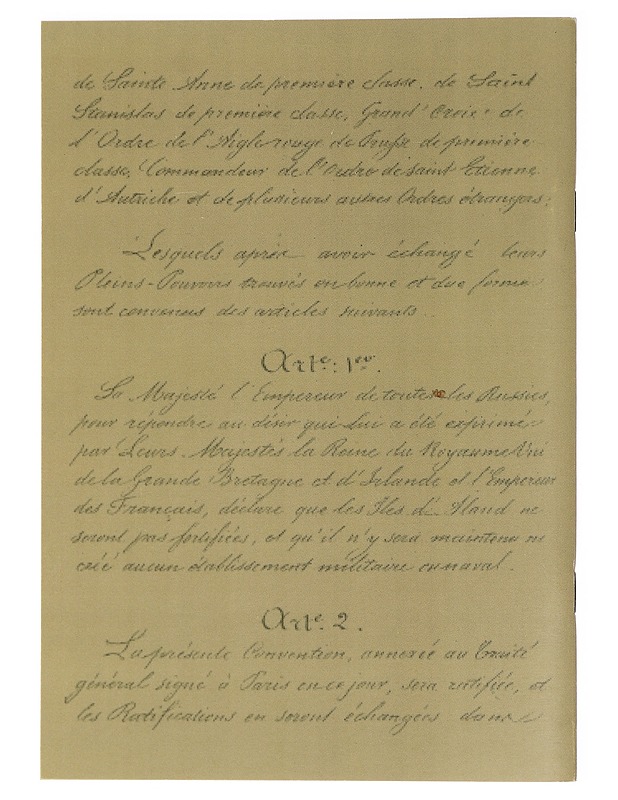 de Sainte Anne de première classe, de Saint
Stanislas de première classe, Grand' Croix de
l'Ordre de l'Aigle rouge de Prusse de première
classe, Commandeur de l'Ordre de Saint Etienne
d'Autriche et de plusieurs autres Ordres étrangers;
Lesquels après avoir échangé leurs
Pleins-Pouvoirs trouvés en bonne et due forme
sont convenus des articles suivants.
Arte: 1er.
Sa Majesté l'Empereur de toutes les Russies,
pour répondre au désir qui lui a été exprimé
par Leurs Majestés la Reine du Royaume Uni
de la Grande Bretagne et d'Irlande et l'Empereur
des Français, déclare que les Iles d'Aland ne
seront pas fortifiées, et qu'il n'y sera maintenu ni
créé aucun établissement militaire ou naval.
Arte. 2.
La présente Convention, annexée au Traité
général signé à Paris en ce jour, sera ratifiée, et
les Ratifications en seront échangées dans